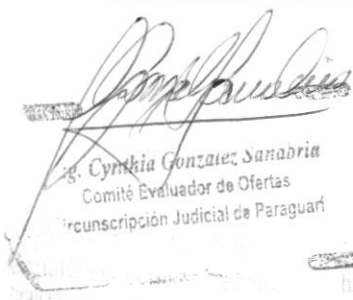 g. Cynthia Gonzalez Sanabria
Comité Evaluador de Ofertas
ircunscripción Judicial de Paraguarí